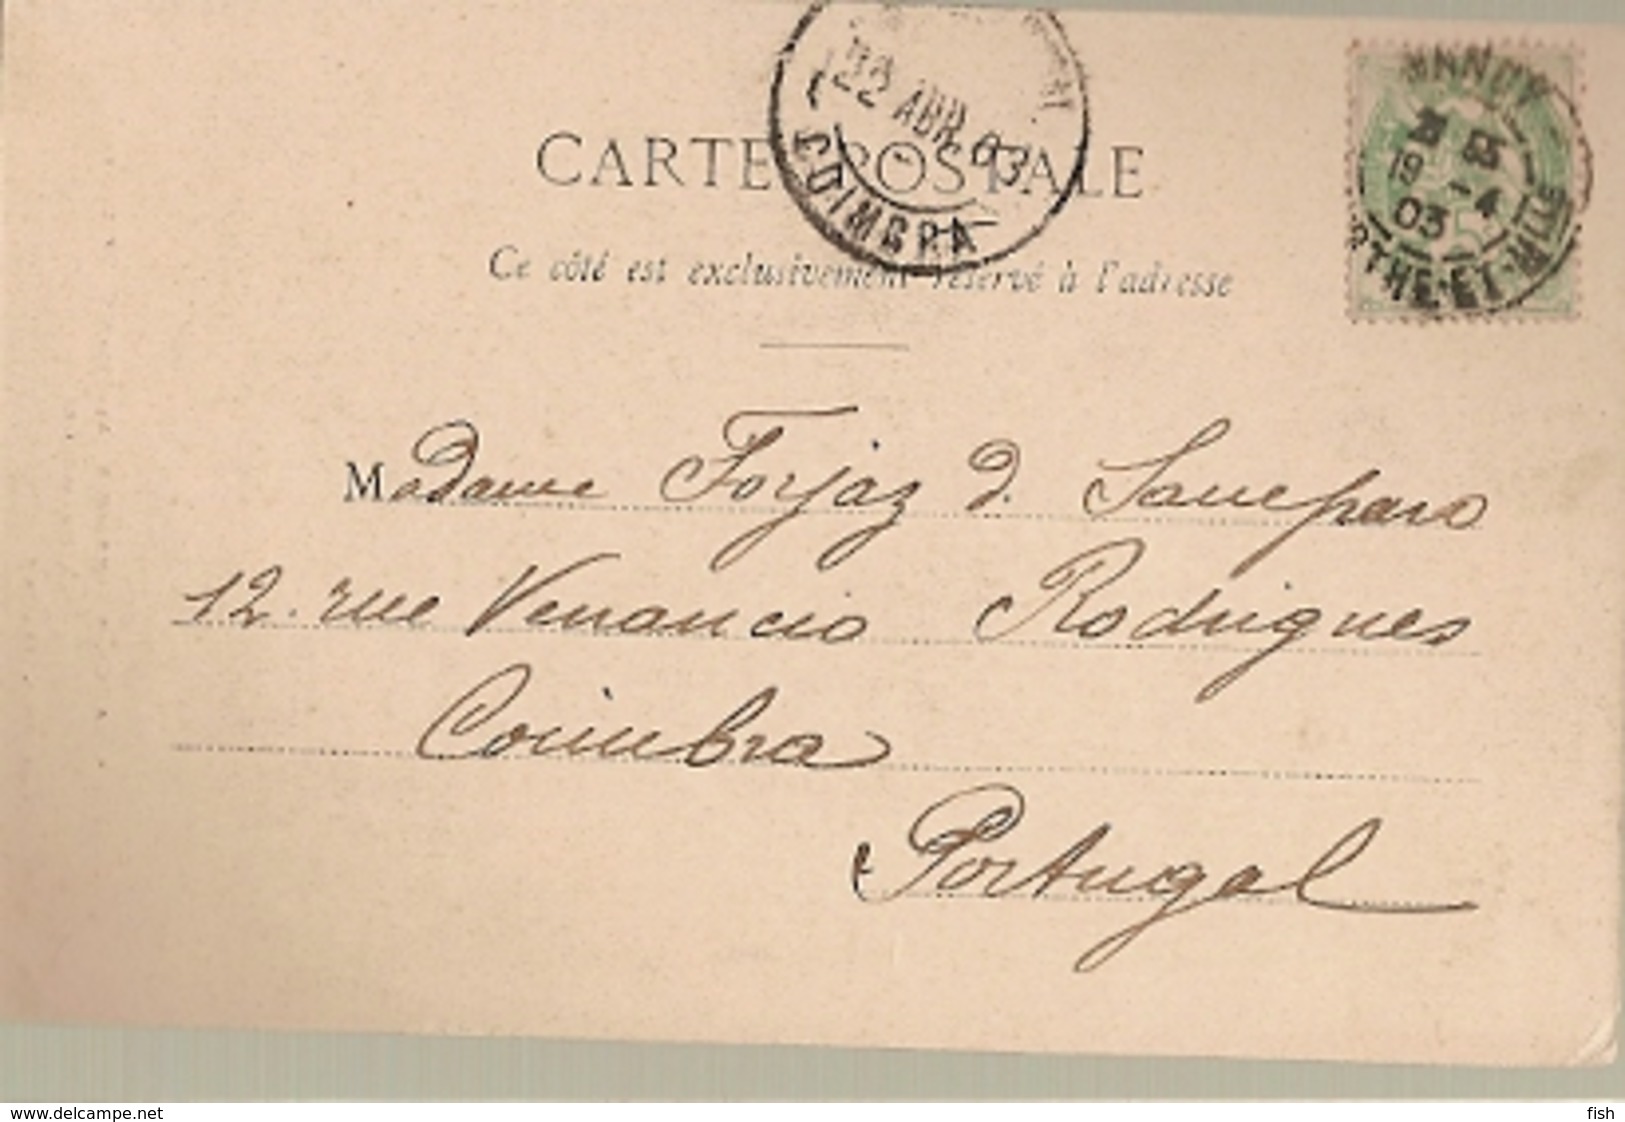 22 ABR. 03
COIMBRA
19 -4
03
RTHE-ET-MLLE
CARTE POSTALE
Ce côté est exclusivement réservé à l'adresse
Madame Forjaz d. Sampaio
12. rue Venancio Rodrigues
Coimbra
Portugal
www.delcampe.net
fish